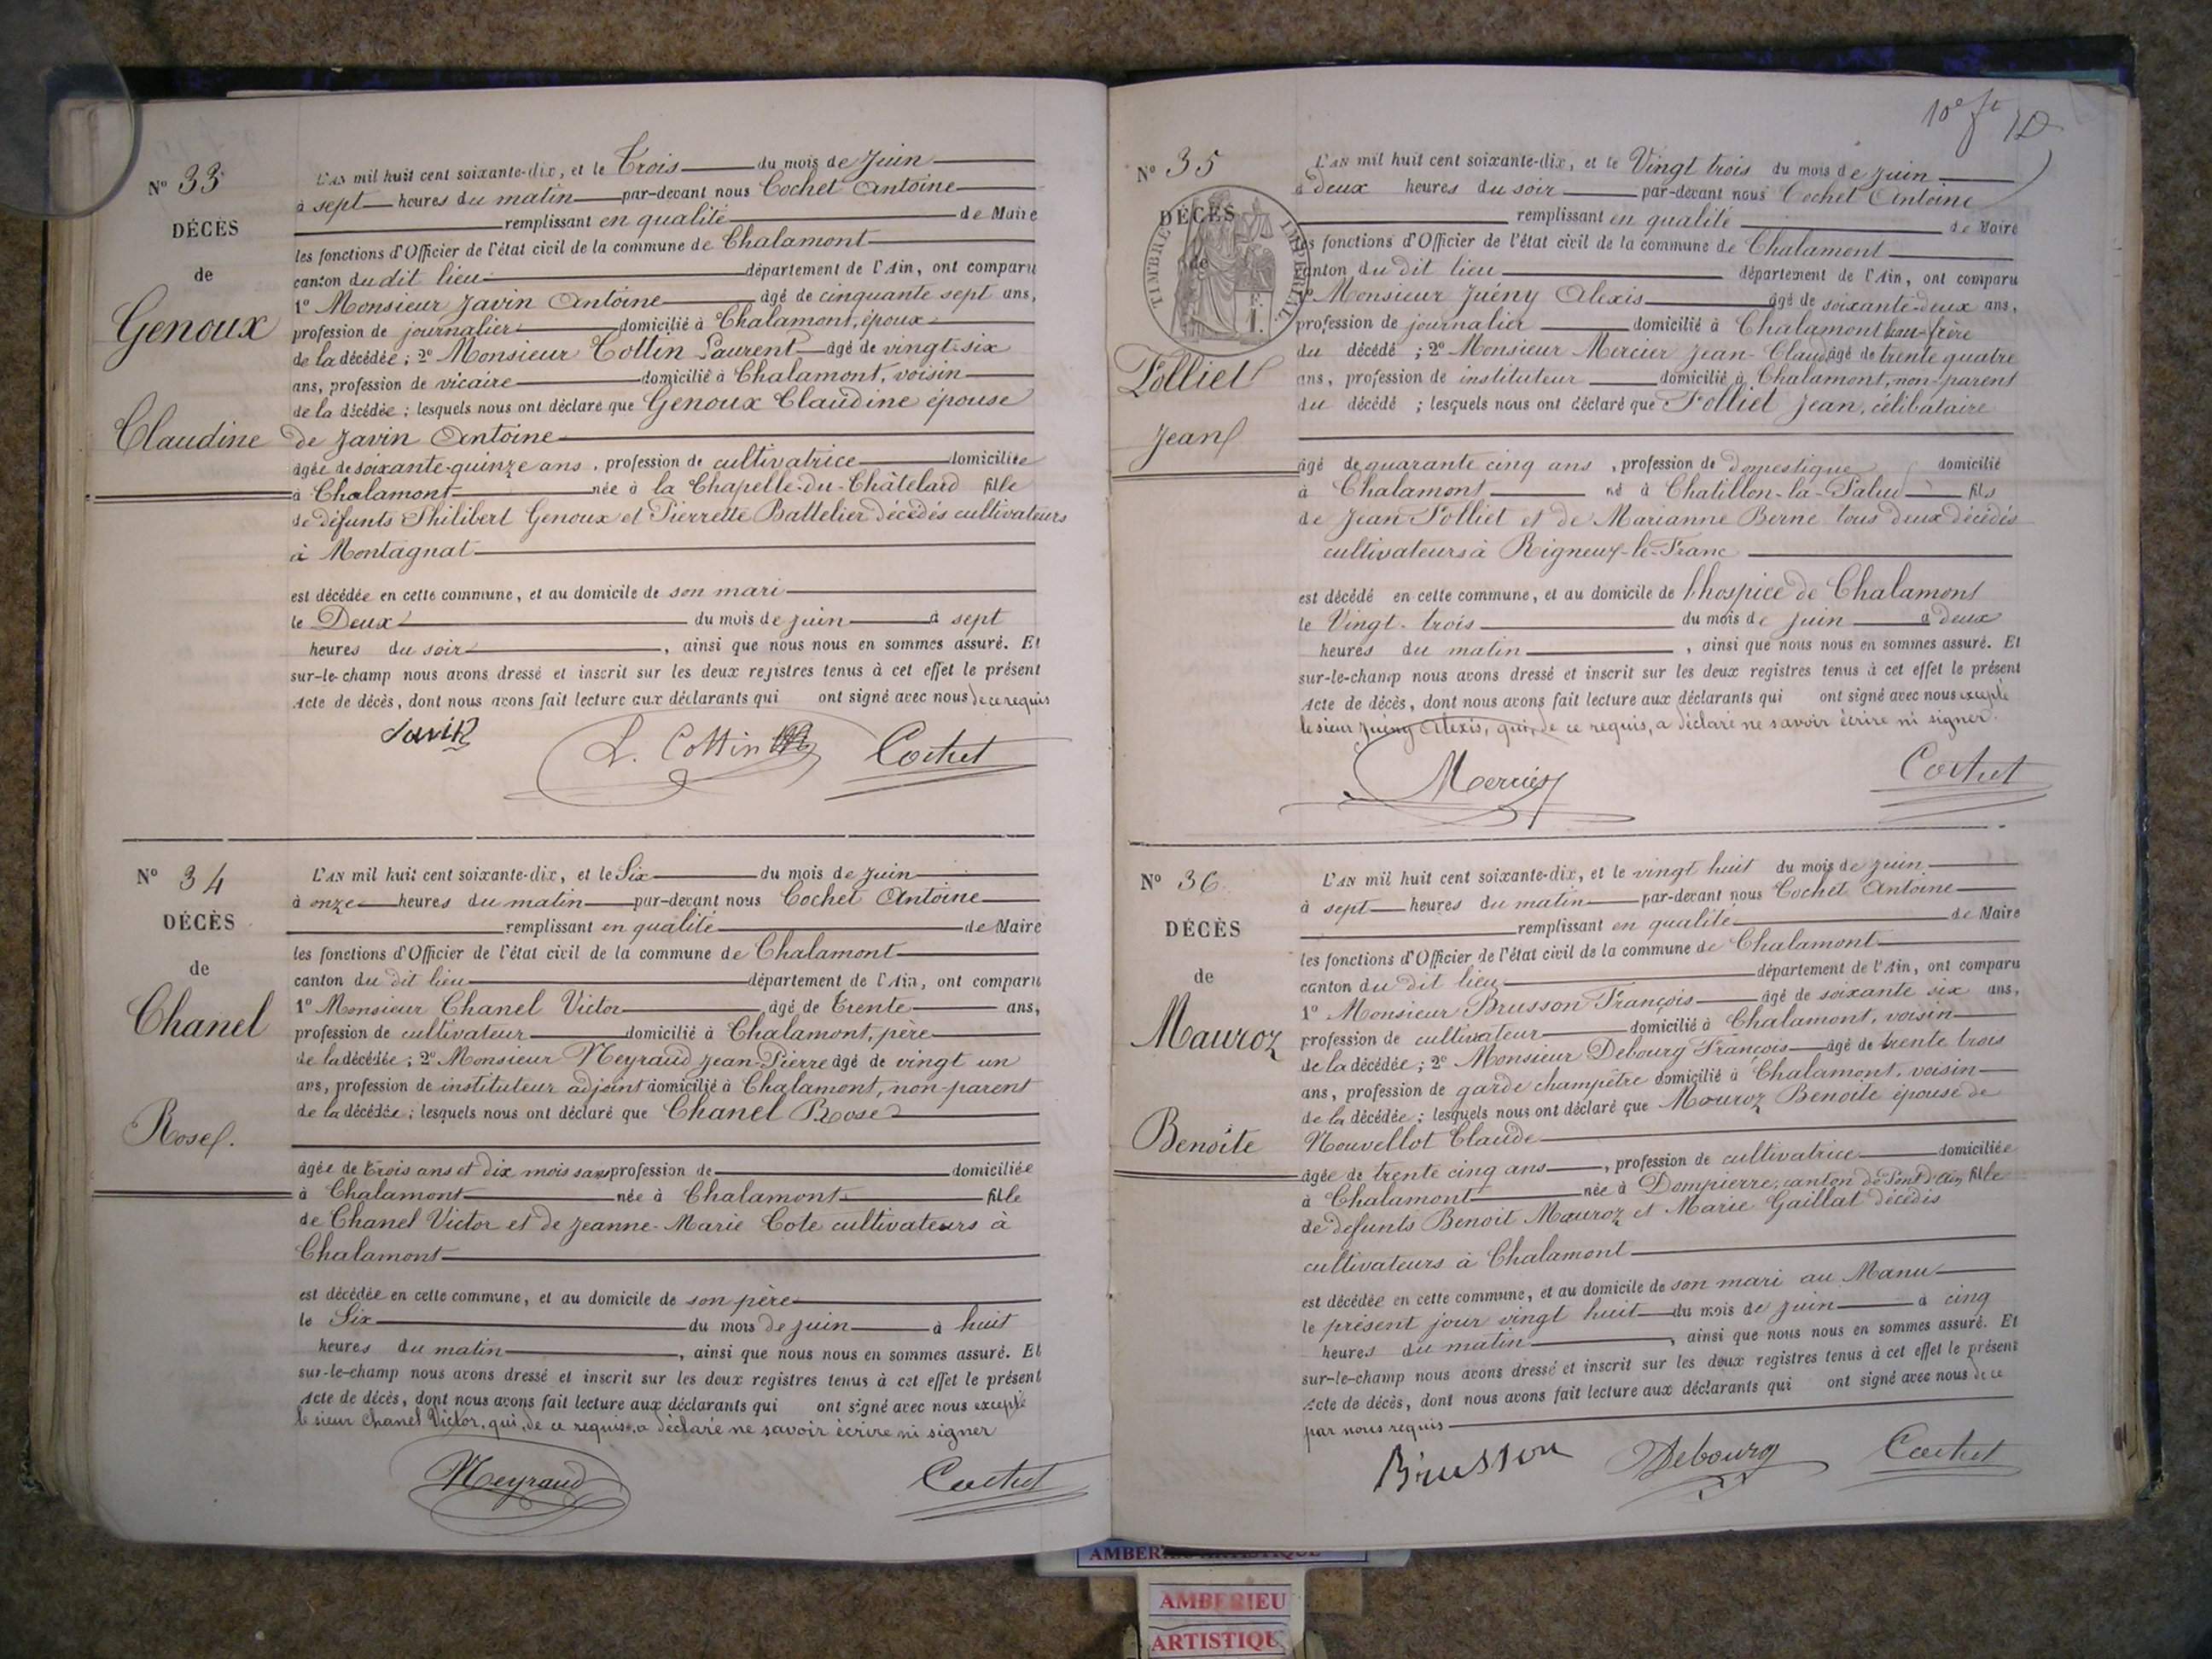 N° 33
DÉCÈS
de
Genoux
Claudine
L'AN mil huit cent soixante-dix, et le Trois du mois de Juin
à sept heures du matin par-devant nous Cochet Antoine
remplissant en qualité de Maire
les fonctions d'Officier de l'état civil de la commune de Chalamont
canton du dit lieu département de l'Ain, ont comparu
1° Monsieur Javin Antoine âgé de cinquante sept ans,
profession de journalier domicilié à Chalamont, époux
de la décédée ; 2° Monsieur Cottin Laurent âgé de vingt-six
ans, profession de vicaire domicilié à Chalamont, voisin
de la décédée ; lesquels nous ont déclaré que Genoux Claudine épouse
de Javin Antoine
âgée de soixante-quinze ans, profession de cultivatrice domiciliée
à Chalamont née à la Chapelle-du-Châtelard fille
de défunts Philibert Genoux et Pierrette Battelier décédés cultivateurs
à Montagnat
est décédée en cette commune, et au domicile de son mari
le Deux du mois de juin à sept
heures du soir, ainsi que nous nous en sommes assuré. Et
sur-le-champ nous avons dressé et inscrit sur les deux registres tenus à cet effet le présent
Acte de décès, dont nous avons fait lecture aux déclarants qui ont signé avec nous de ce requis
Javin L. Cottin Cochet
N° 34
DÉCÈS
de
Chanel
Rose
L'AN mil huit cent soixante-dix, et le Six du mois de Juin
à onze heures du matin par-devant nous Cochet Antoine
remplissant en qualité de Maire
les fonctions d'Officier de l'état civil de la commune de Chalamont
canton du dit lieu département de l'Ain, ont comparu
1° Monsieur Chanel Victor âgé de Trente ans,
profession de cultivateur domicilié à Chalamont, père
de la décédée ; 2° Monsieur Neyraud Jean-Pierre âgé de vingt un
ans, profession de instituteur adjoint domicilié à Chalamont, non-parent
de la décédée ; lesquels nous ont déclaré que Chanel Rose
âgée de Trois ans et dix mois sans profession de domiciliée
à Chalamont née à Chalamont fille
de Chanel Victor et de Jeanne-Marie Cote cultivateurs à
Chalamont
est décédée en cette commune, et au domicile de son père
le Six du mois de juin à huit
heures du matin, ainsi que nous nous en sommes assuré. Et
sur-le-champ nous avons dressé et inscrit sur les deux registres tenus à cet effet le présent
Acte de décès, dont nous avons fait lecture aux déclarants qui ont signé avec nous excepté
le sieur Chanel Victor, qui, de ce requis, a déclaré ne savoir écrire ni signer
Neyraud Cochet
10e ft
N° 35
DÉCÈS
de
TIMBRE IMPÉRIAL
Folliet
Jean
L'AN mil huit cent soixante-dix, et le Vingt trois du mois de juin
à deux heures du soir par-devant nous Cochet Antoine
remplissant en qualité de Maire
les fonctions d'Officier de l'état civil de la commune de Chalamont
canton du dit lieu département de l'Ain, ont comparu
1° Monsieur Juény Alexis âgé de soixante-deux ans,
profession de journalier domicilié à Chalamont beau-frère
du décédé ; 2° Monsieur Mercier Jean-Claude âgé de trente quatre
ans, profession de instituteur domicilié à Chalamont, non-parent
du décédé ; lesquels nous ont déclaré que Folliet Jean, célibataire
âgé de quarante cinq ans, profession de domestique domicilié
à Chalamont né à Chatillon-la-Palud fils
de Jean Folliet et de Marianne Berne tous deux décédés
cultivateurs à Rigneux-le-Franc
est décédé en cette commune, et au domicile de l'hospice de Chalamont
le Vingt-trois du mois de juin à deux
heures du matin, ainsi que nous nous en sommes assuré. Et
sur-le-champ nous avons dressé et inscrit sur les deux registres tenus à cet effet le présent
Acte de décès, dont nous avons fait lecture aux déclarants qui ont signé avec nous excepté
le sieur Juény Alexis, qui, de ce requis, a déclaré ne savoir écrire ni signer.
Mercier Cochet
N° 36
DÉCÈS
de
Mauroz
Benoîte
L'AN mil huit cent soixante-dix, et le vingt huit du mois de juin
à sept heures du matin par-devant nous Cochet Antoine
remplissant en qualité de Maire
les fonctions d'Officier de l'état civil de la commune de Chalamont
canton du dit lieu département de l'Ain, ont comparu
1° Monsieur Brusson François âgé de soixante six ans,
profession de cultivateur domicilié à Chalamont, voisin
de la décédée ; 2° Monsieur Debourg François âgé de trente trois
ans, profession de garde champêtre domicilié à Chalamont, voisin
de la décédée ; lesquels nous ont déclaré que Mauroz Benoîte épouse de
Nouvellot Claude
âgée de trente cinq ans, profession de cultivatrice domiciliée
à Chalamont née à Dompierre, canton de Pont d'Ain fille
de défunts Benoit Mauroz et Marie Gaillat décédés
cultivateurs à Chalamont
est décédée en cette commune, et au domicile de son mari au Manu
le présent jour vingt huit du mois de juin à cinq
heures du matin, ainsi que nous nous en sommes assuré. Et
sur-le-champ nous avons dressé et inscrit sur les deux registres tenus à cet effet le présent
Acte de décès, dont nous avons fait lecture aux déclarants qui ont signé avec nous de ce
par nous requis
Brusson Debourg Cochet
AMBERIEU ARTISTIQUE
AMBERIEU
ARTISTIQU